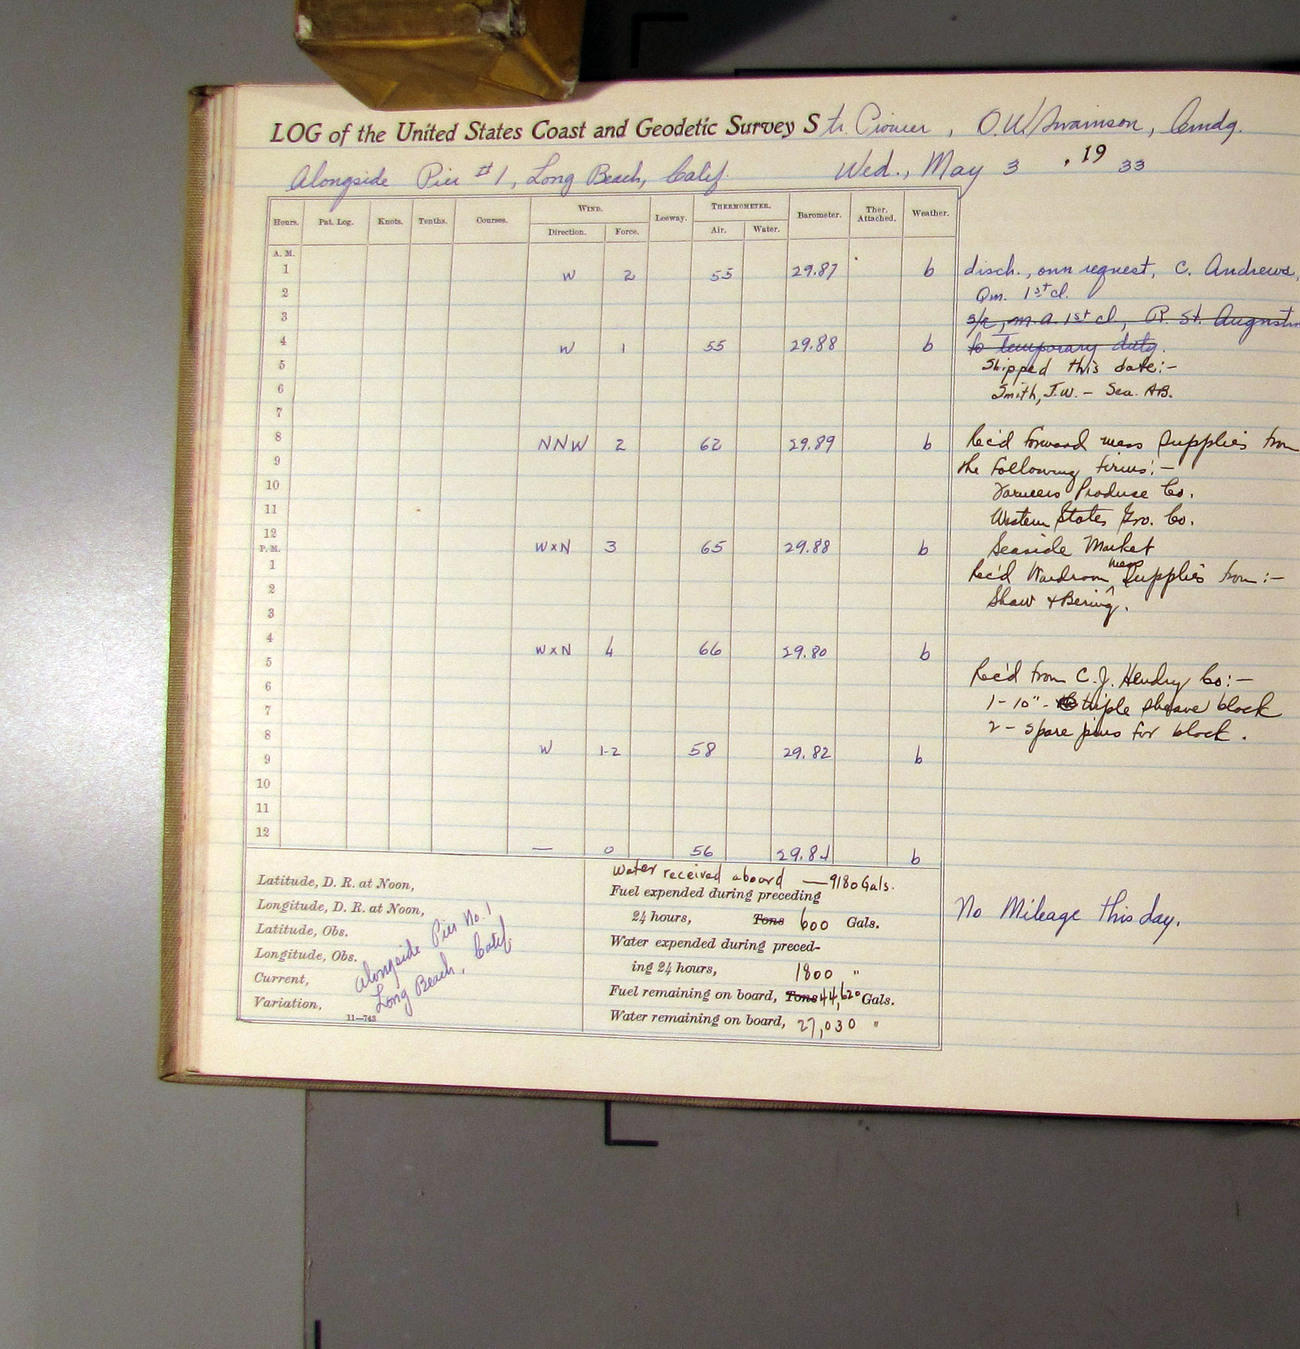 LOG of the United States Coast and Geodetic Survey Str. Pioneer, O.W. Swainson, Comdg.
Alongside Pier #1, Long Beach, Calif. Wed., May 3, 1933
Hours. Pat. Log. Knots. Tenths. Courses. WIND. Leeway. THERMOMETER. Barometer. Ther. Attached. Weather.
Direction. Force. Air. Water.
A. M.
1 W 2 55 29.87 b disch., own request, C. Andrews,
2 Qm. 1st cl.
3 s/c, m.a. 1st cl, R. St. Augustin
4 W 1 55 29.88 b to temporary duty.
5 Shipped this date:-
6 Smith, J.W. - Sea. AB.
7
8 NNW 2 62 29.89 b Rec'd forward mess supplies from
9 the following firms:-
10 Farmers Produce Co.
11 Western States Gro. Co.
12 WxN 3 65 29.88 b Seaside Market
P. M.
1 Rec'd Wardroom mess supplies from:-
2 Shaw & Bering.
3
4 WxN 4 66 29.80 b
5 Rec'd from C.J. Hendry Co:-
6 1- 10" - triple sheave block
7 2 - spare pins for block.
8 W 1-2 58 29.82 b
9
10
11
12 — 0 56 29.81 b
Water received aboard — 9180 Gals.
Latitude, D. R. at Noon, Fuel expended during preceding
Longitude, D. R. at Noon, 24 hours, Tons 600 Gals. No Mileage this day.
Latitude, Obs. Water expended during preced-
Longitude, Obs. ing 24 hours, 1800 "
Current, Fuel remaining on board, Tons 44,620 Gals.
Variation, Water remaining on board, 27,030 "
Alongside Pier No. 1
Long Beach, Calif.
11—743